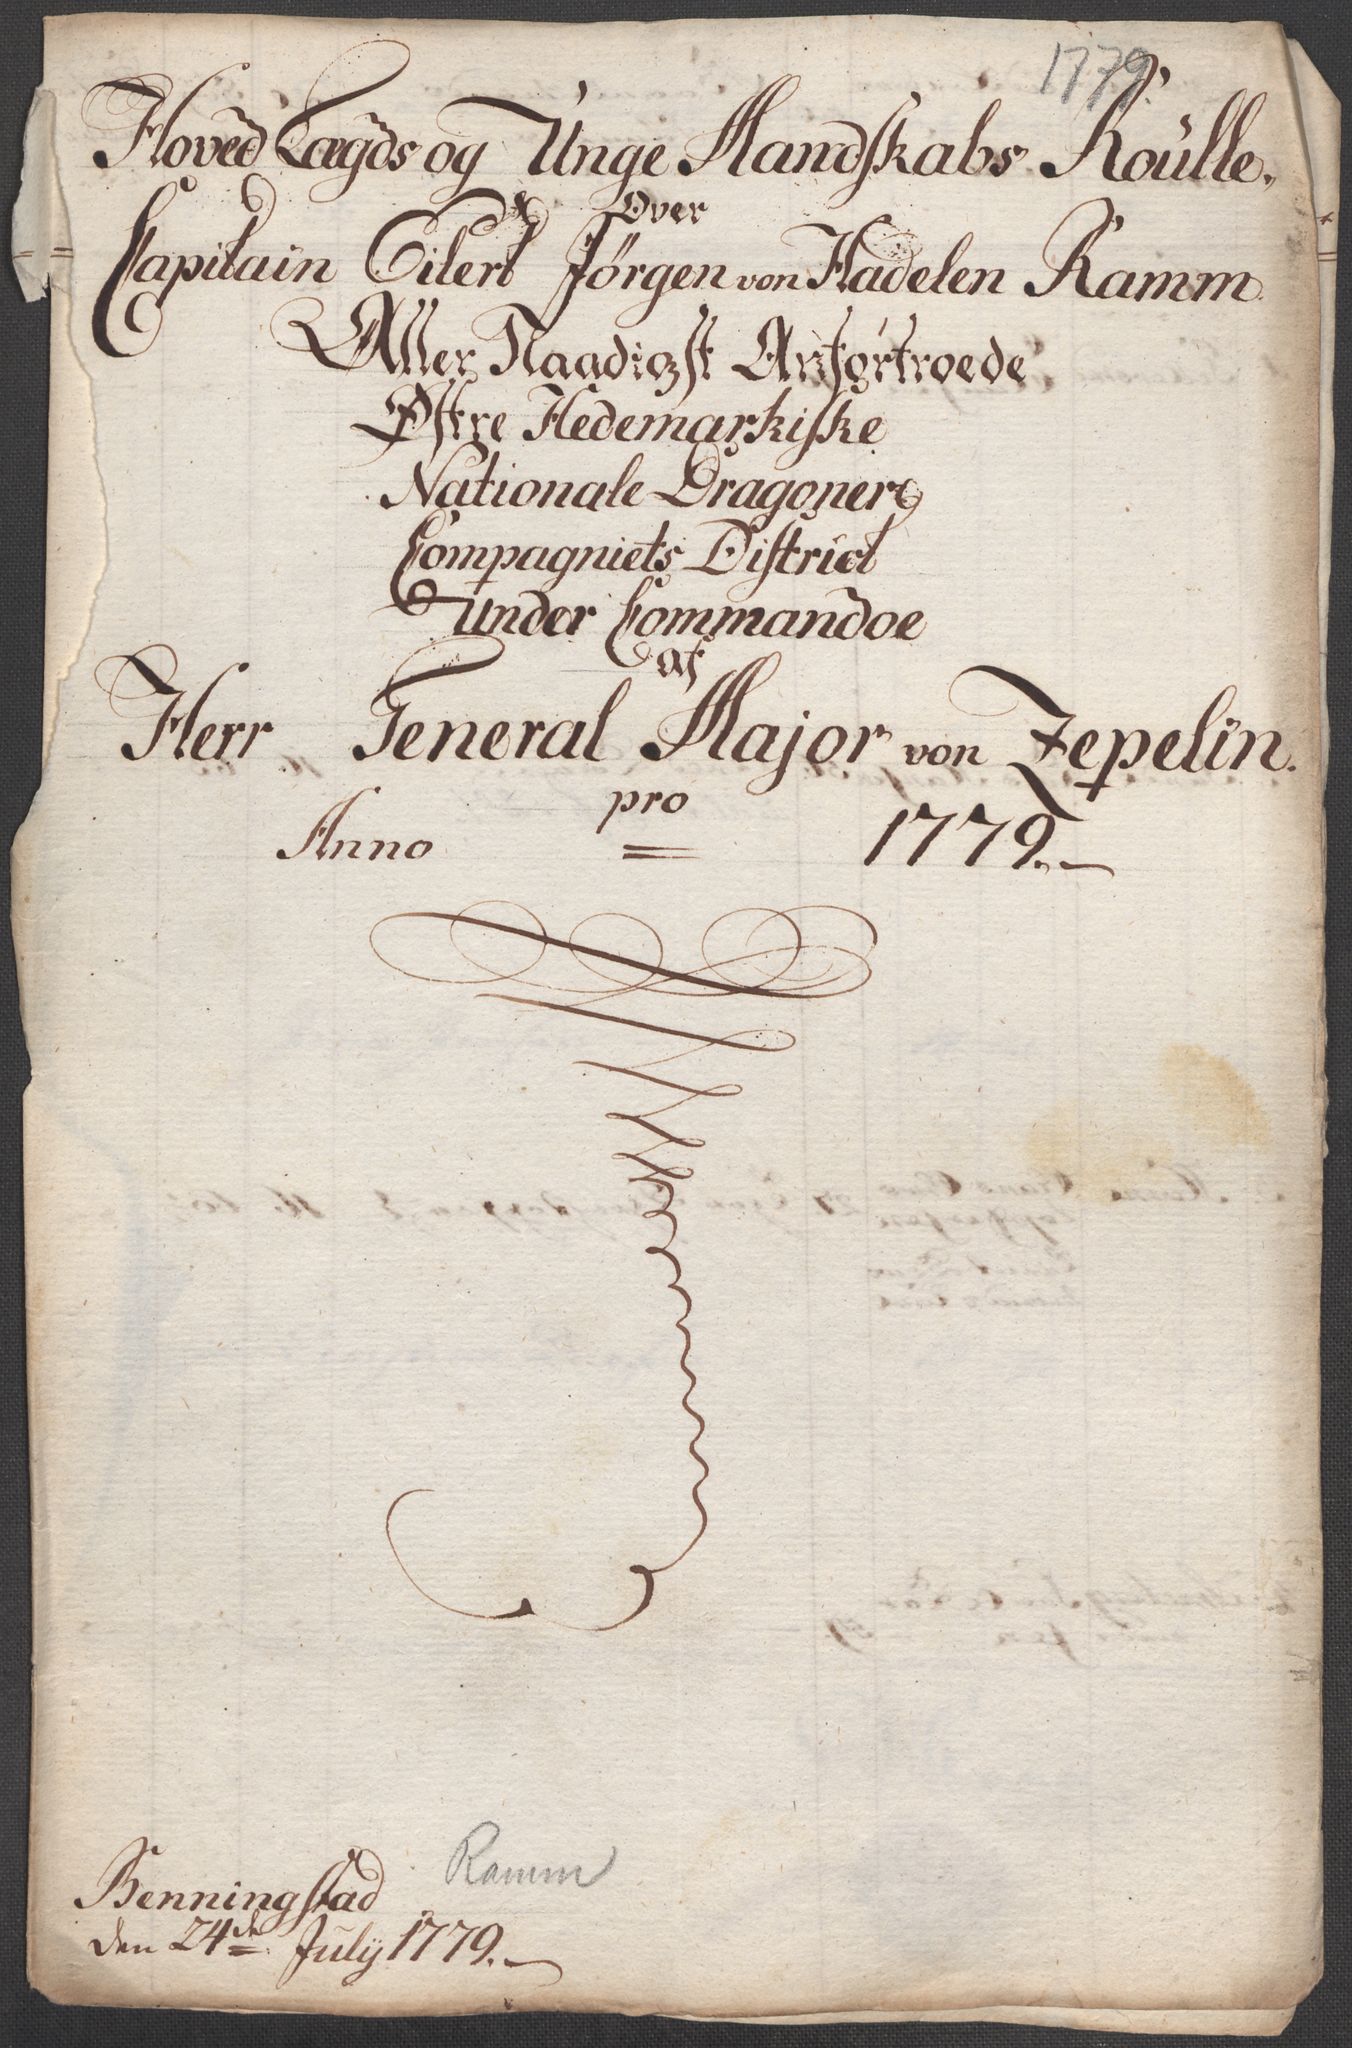 1779.
Hoved Lægds og Unge Mandskabs Roülle.
Over
Capitain Eilert Jørgen von Hadelen Ramm
Aller Naadigst Anfortroede
Østre Hedemarkiske
Nationale Dragoner
Compagniets District
Under Commandoe
af
Herr General Major von Zepelin.
pro
Anno = 1779.
Benningstad
den 24de July 1779.
Ramm